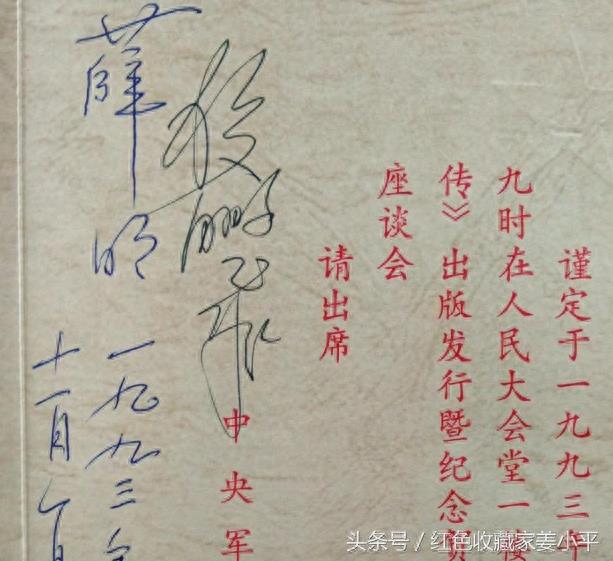 谨定于一九九三年
九时在人民大会堂一楼
传》出版发行暨纪念贺
座谈会
请出席
中央军
鹏飞
薛明
一九九三年
十一月
头条号／红色收藏家姜小平